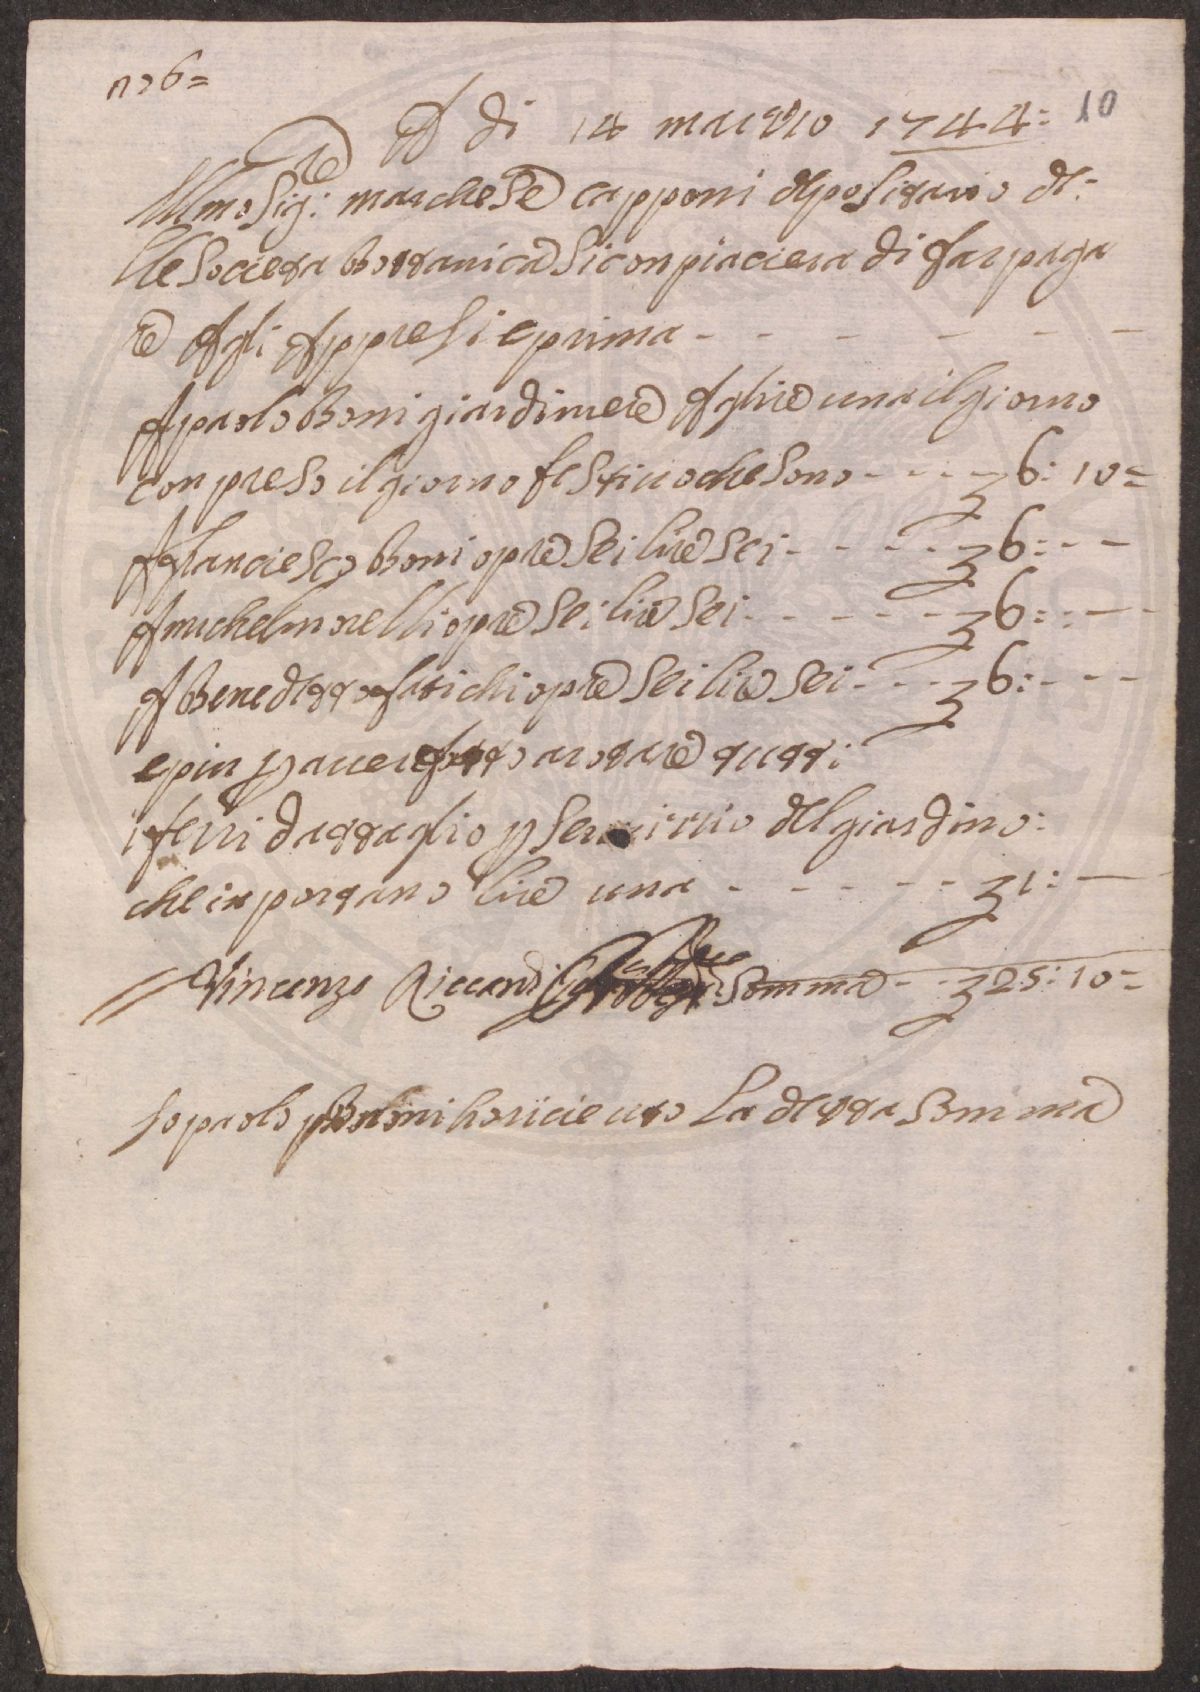 no 6=
A di 14 marzo 1744: 10
Illmo Sig:re marchese capponi depositario de-
lle Societa Bottanica Si conpiaciera di far paga
re Agli Appresi e prima - - - - -
A paolo Boni giardiniere A lire una il giorno
conpreso il giorno festivo che sono - - - - £ 6: 10=
A francieso Boni opre sei lire sei - - - - £ 6: - -
A michel morelli opre sei lire sei - - - - - £ 6: : -
A Benedetto fatichi opre sei lire sei - - - £ 6: - - -
e piu p aver fatto arotare tutti
i ferri dattaglio p servizio del giardino:
che inportano lire una - - - - - £ 1: -
Vincenzo Riccardi Somma - - £ 25: 10=
Io paolo Boni ho ricieuto La detta somma